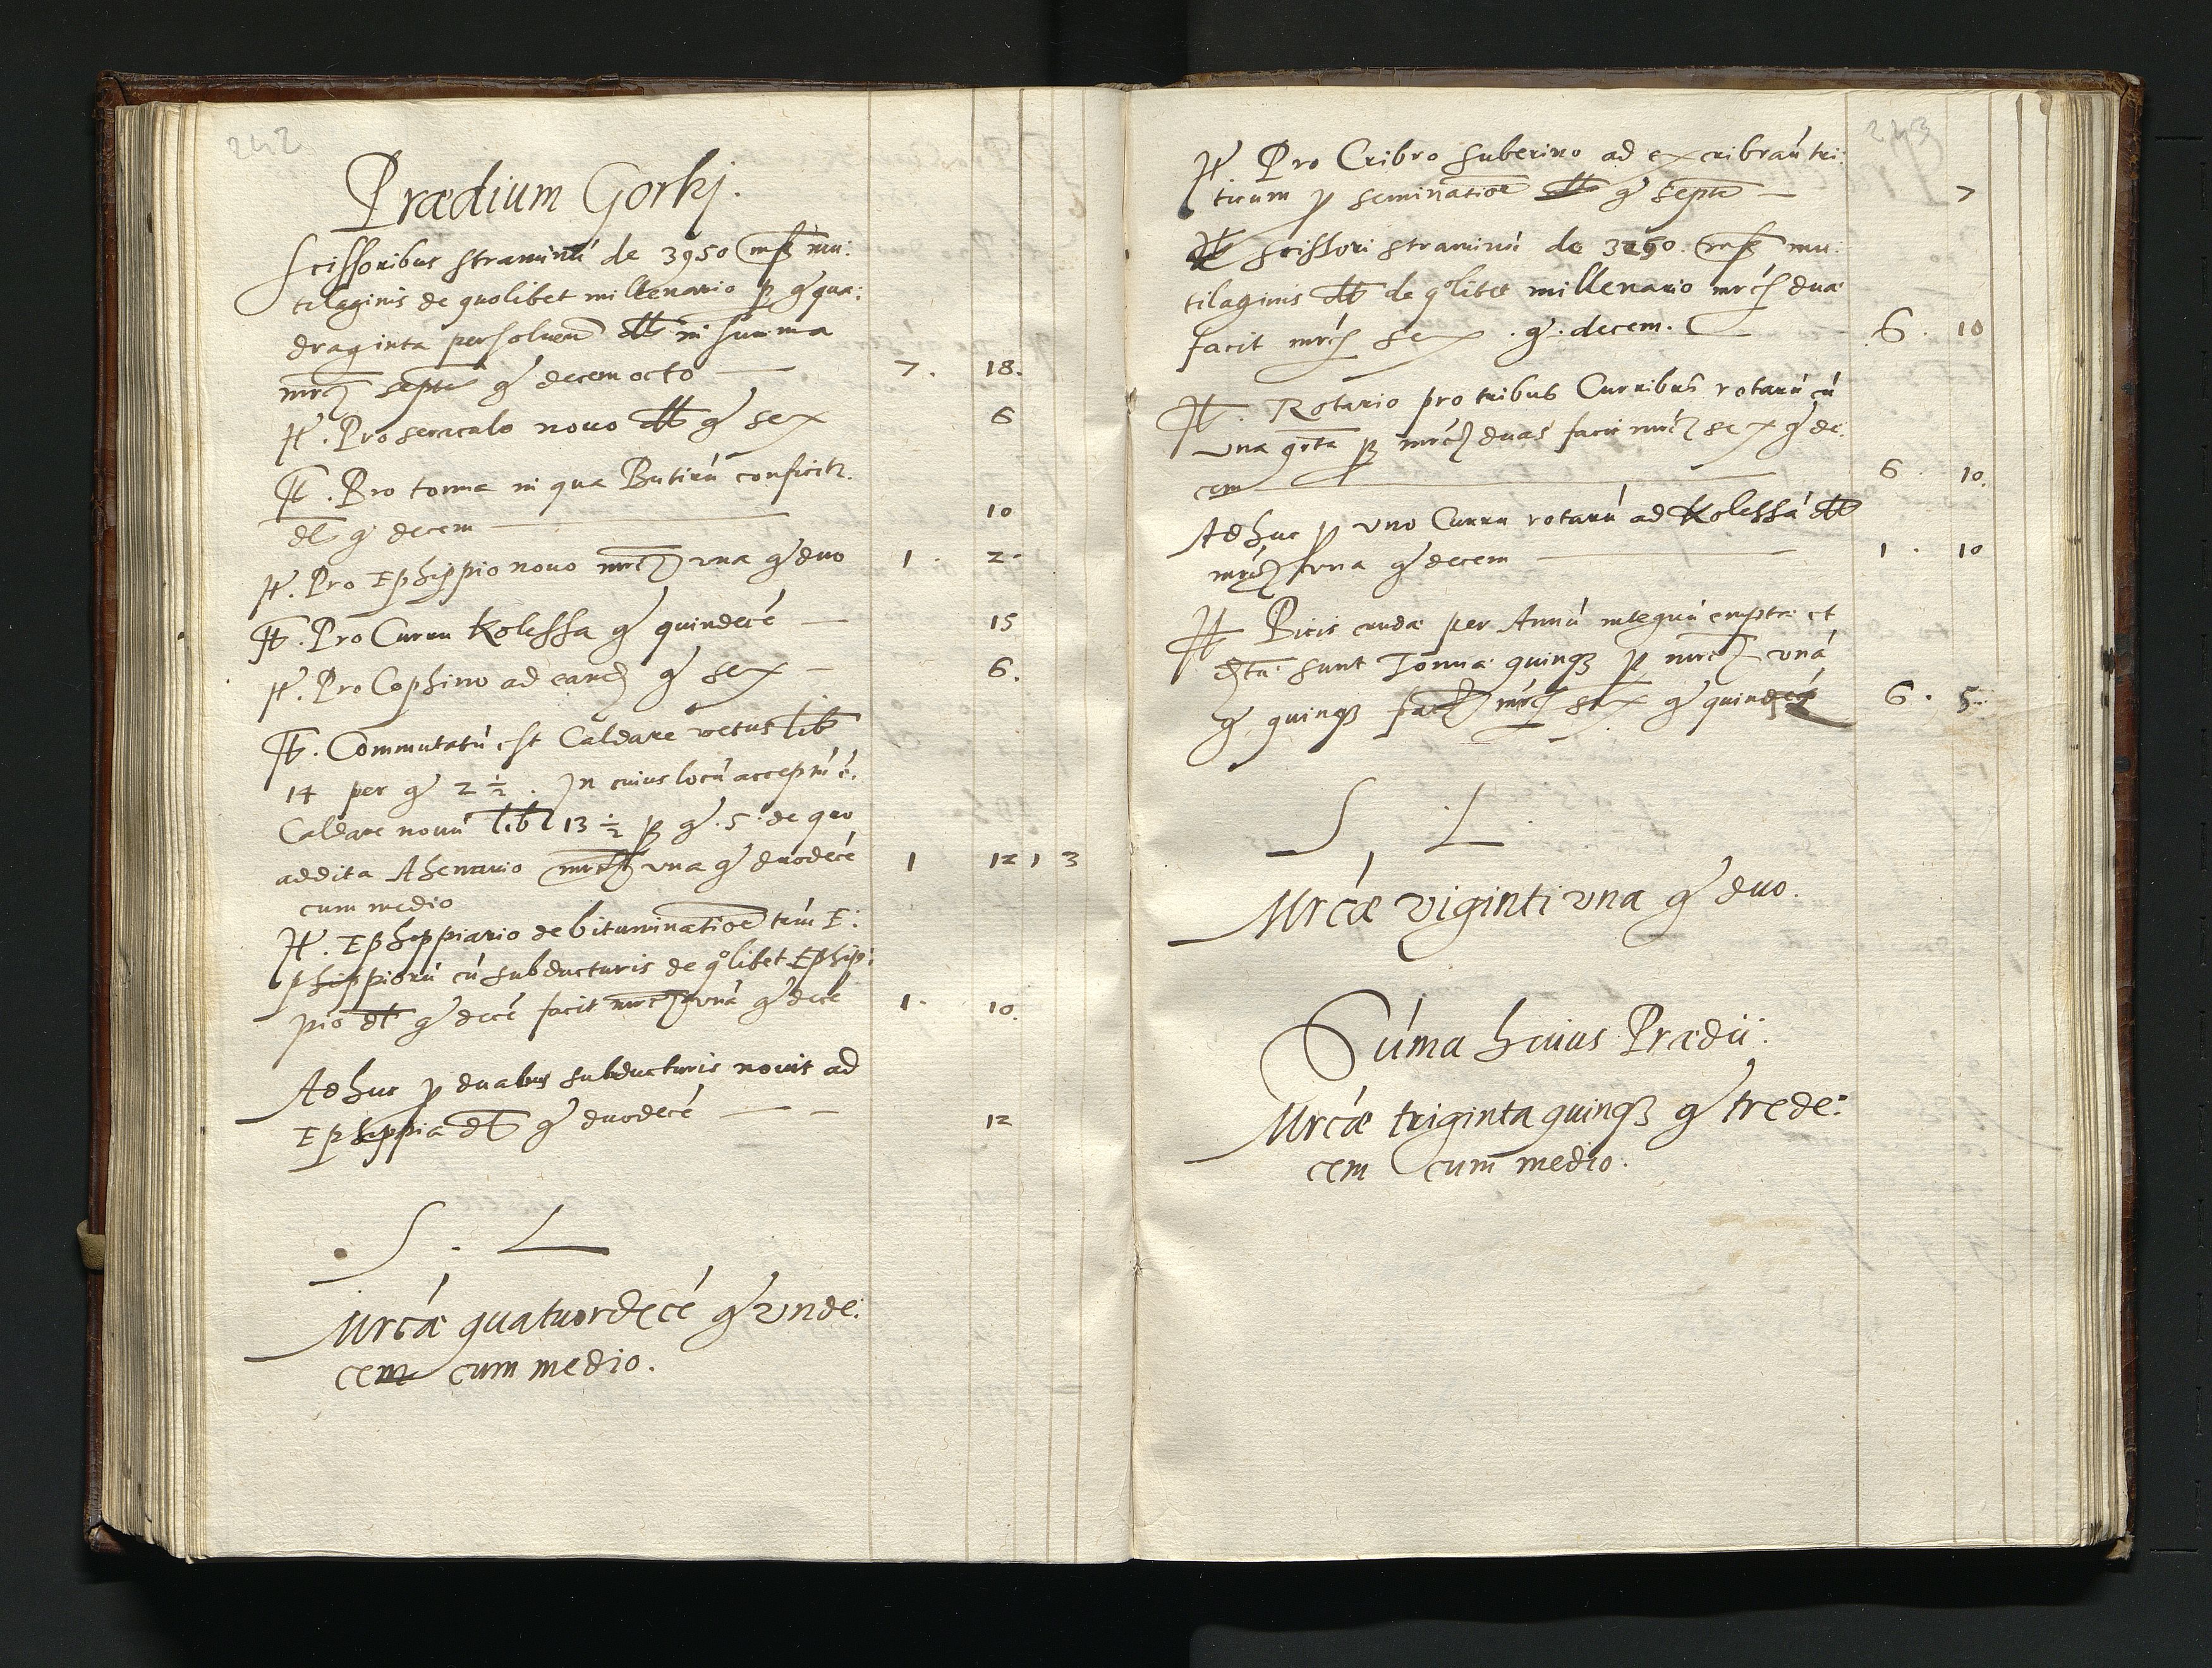 242
Prædium Gorkj.
Scissoribus straminū de 3950 mu:
tilaginis de quolibet millenario p gr qua:
draginta persoluen dt in summa
mrc septē gr decem octo 7. 18.
It. Pro seraculo nouo dt gr sex 6
It. Pro tonna in qua Butirū conficitr
dt gr decem 10
It. Pro Ephippio nouo mrc vna gr duo 1. 2.
It. Pro Curru Kolessa gr quindecē 15
It. Pro Cophino ad eand gr sex 6.
It. Commutatū est Caldare vetus lib
14 per gr 2 ½. In cuius locū
Caldare nouū lib 13 ½ p gr. 5. de quo
addita Ahenario mrc vna gr duodecē 1 12 1 3
cum medio
It. Ephippiario de bituminatioe E:
phippiorū cū subducturis de qolibet Ephip:
pio dt gr decē facit mrc vnā gr decē 1. 10.
Adhuc p duabus subducturis nouis ad
Ephippia dt gr duodecē 12
S. L
Mrcæ quatuordecē gr vnde:
cem cum medio.
243
It. Pro Cribro suberino ad excribran tri:
ticum p seminatioe dt gr septē 7
It scissori straminū de 3250. mu:
tilaginis dt de qolibet millenario mrc dua
facit mrc sex. gr. decem. 6. 10
It. Rotario pro tribus Curribus rotarū cū
vna p mrc duas facit mrc sex gr de:
cem 6. 10.
Adhuc p vno Curru rotarū ad Kolessā dt
mrc vna gr decem 1. 10
It Picis per Annū integrū empta et
sunt Tonna quinq p mrc vnā
gr quinq facit mrc sex gr quinq 6. 5.
S L
Mrcæ viginti vna gr duo.
Sūma huius Prædii:
Mrcæ triginta quinq gr trede:
cem cum medio.